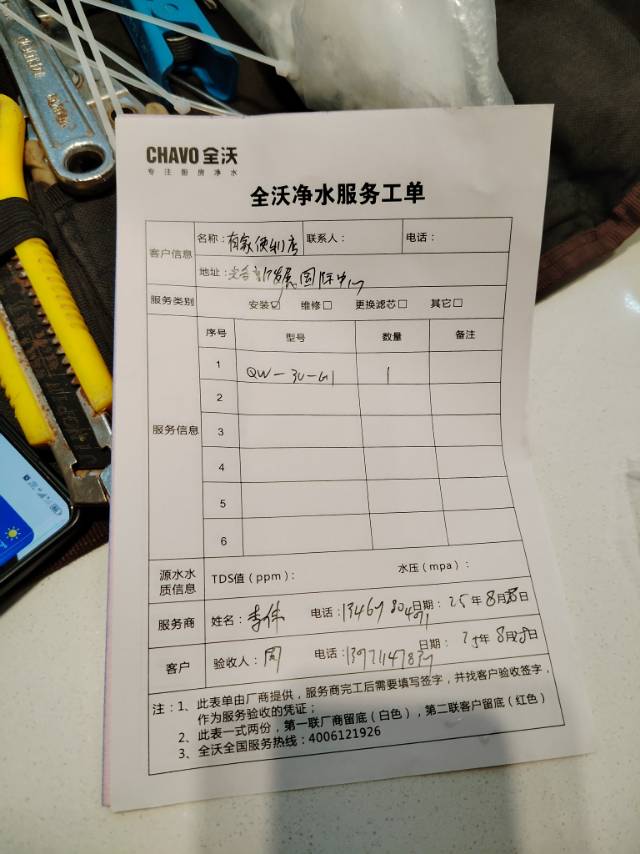 CHAVO 全沃
专注厨房净水
全沃净水服务工单
客户信息
名称：有家便利店 联系人： 电话：
地址： 国际中心
服务类别 安装☑ 维修□ 更换滤芯□ 其它□
服务信息
序号 型号 数量 备注
1 QW-3U-G1 1
2
3
4
5
6
源水水质信息 TDS值（ppm）： 水压（mpa）：
服务商 姓名：李伟 电话： 日期：25年8月28日
客户 验收人：周 电话： 日期：25年8月28日
注：1、此表单由厂商提供，服务商完工后需要填写签字，并找客户验收签字，
作为服务验收的凭证；
2、此表一式两份，第一联厂商留底（白色），第二联客户留底（红色）
3、全沃全国服务热线：4006121926